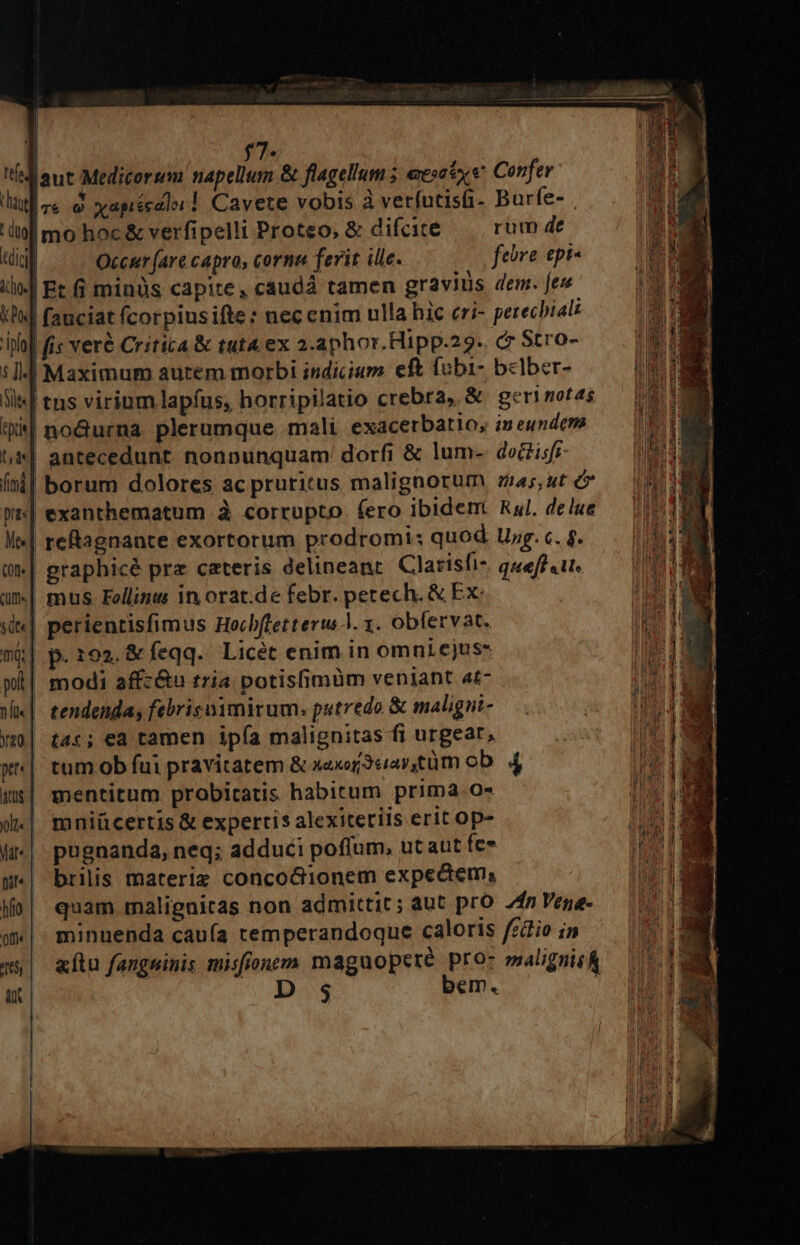 57.
aut Medicorum napellum & flagellum; προσέχε-
τε ὦ χαριέςαλοι! Cavete vobis à verſutisſi-
mo hoc & verſipelli Proteo, & diſcite
Occurſare capro, cornu ferit ille.
Et ſi minùs capite, caudâ tamen graviùs
ſauciat ſcorpius iſte: nec enim ulla hîc cri-
ſis verè Critica & tuta ex 2.aphor.Hipp.29.
Maximum autem morbi indicium eſt ſubi-
tus virium lapſus, horripilatio crebra, &
nocturna plerumque mali exacerbatio,
antecedunt nonnunquam dorſi & lum-
borum dolores ac pruritus malignorum
exanthematum à corrupto ſero ibidem
reſtagnante exortorum prodromi: quod
graphicè præ cæteris delineant Clarisſi-
mus Follinus in orat.de febr. petech. & Ex-
perientisſimus Hochſtetterus l. 1. obſervat.
p. 102. & ſeqq. Licèt enim in omni ejus-
modi affectu tria potisſimùm veniant at-
tendenda, febris nimirum, putredo & maligni-
tas; ea tamen ipſa malignitas ſi urgeat,
tum ob ſui pravitatem & κακοήθειαν, tùm ob
mentitum probitatis habitum prima o-
mniũ certis & expertis alexiteriis erit op-
pugnanda, neq; adduci poſſum, ut aut fe-
brilis materiæ concoctionem expectem,
quam malignitas non admittit; aut pro
minuenda cauſa temperandoque caloris
æſtu ſanguinis misſionem magnoperè pro-
D 5 bem.
Confer
Burſe-
rum de
febre epi-
dem. ſeu
petechiali
& Stro-
belber-
geri notas
in eundem
doctisſi-
mas, ut &
Rul. de lue
Ung. c. 5.
quæſt. 11.
4
An Venæ-
ſectio in
malignis &